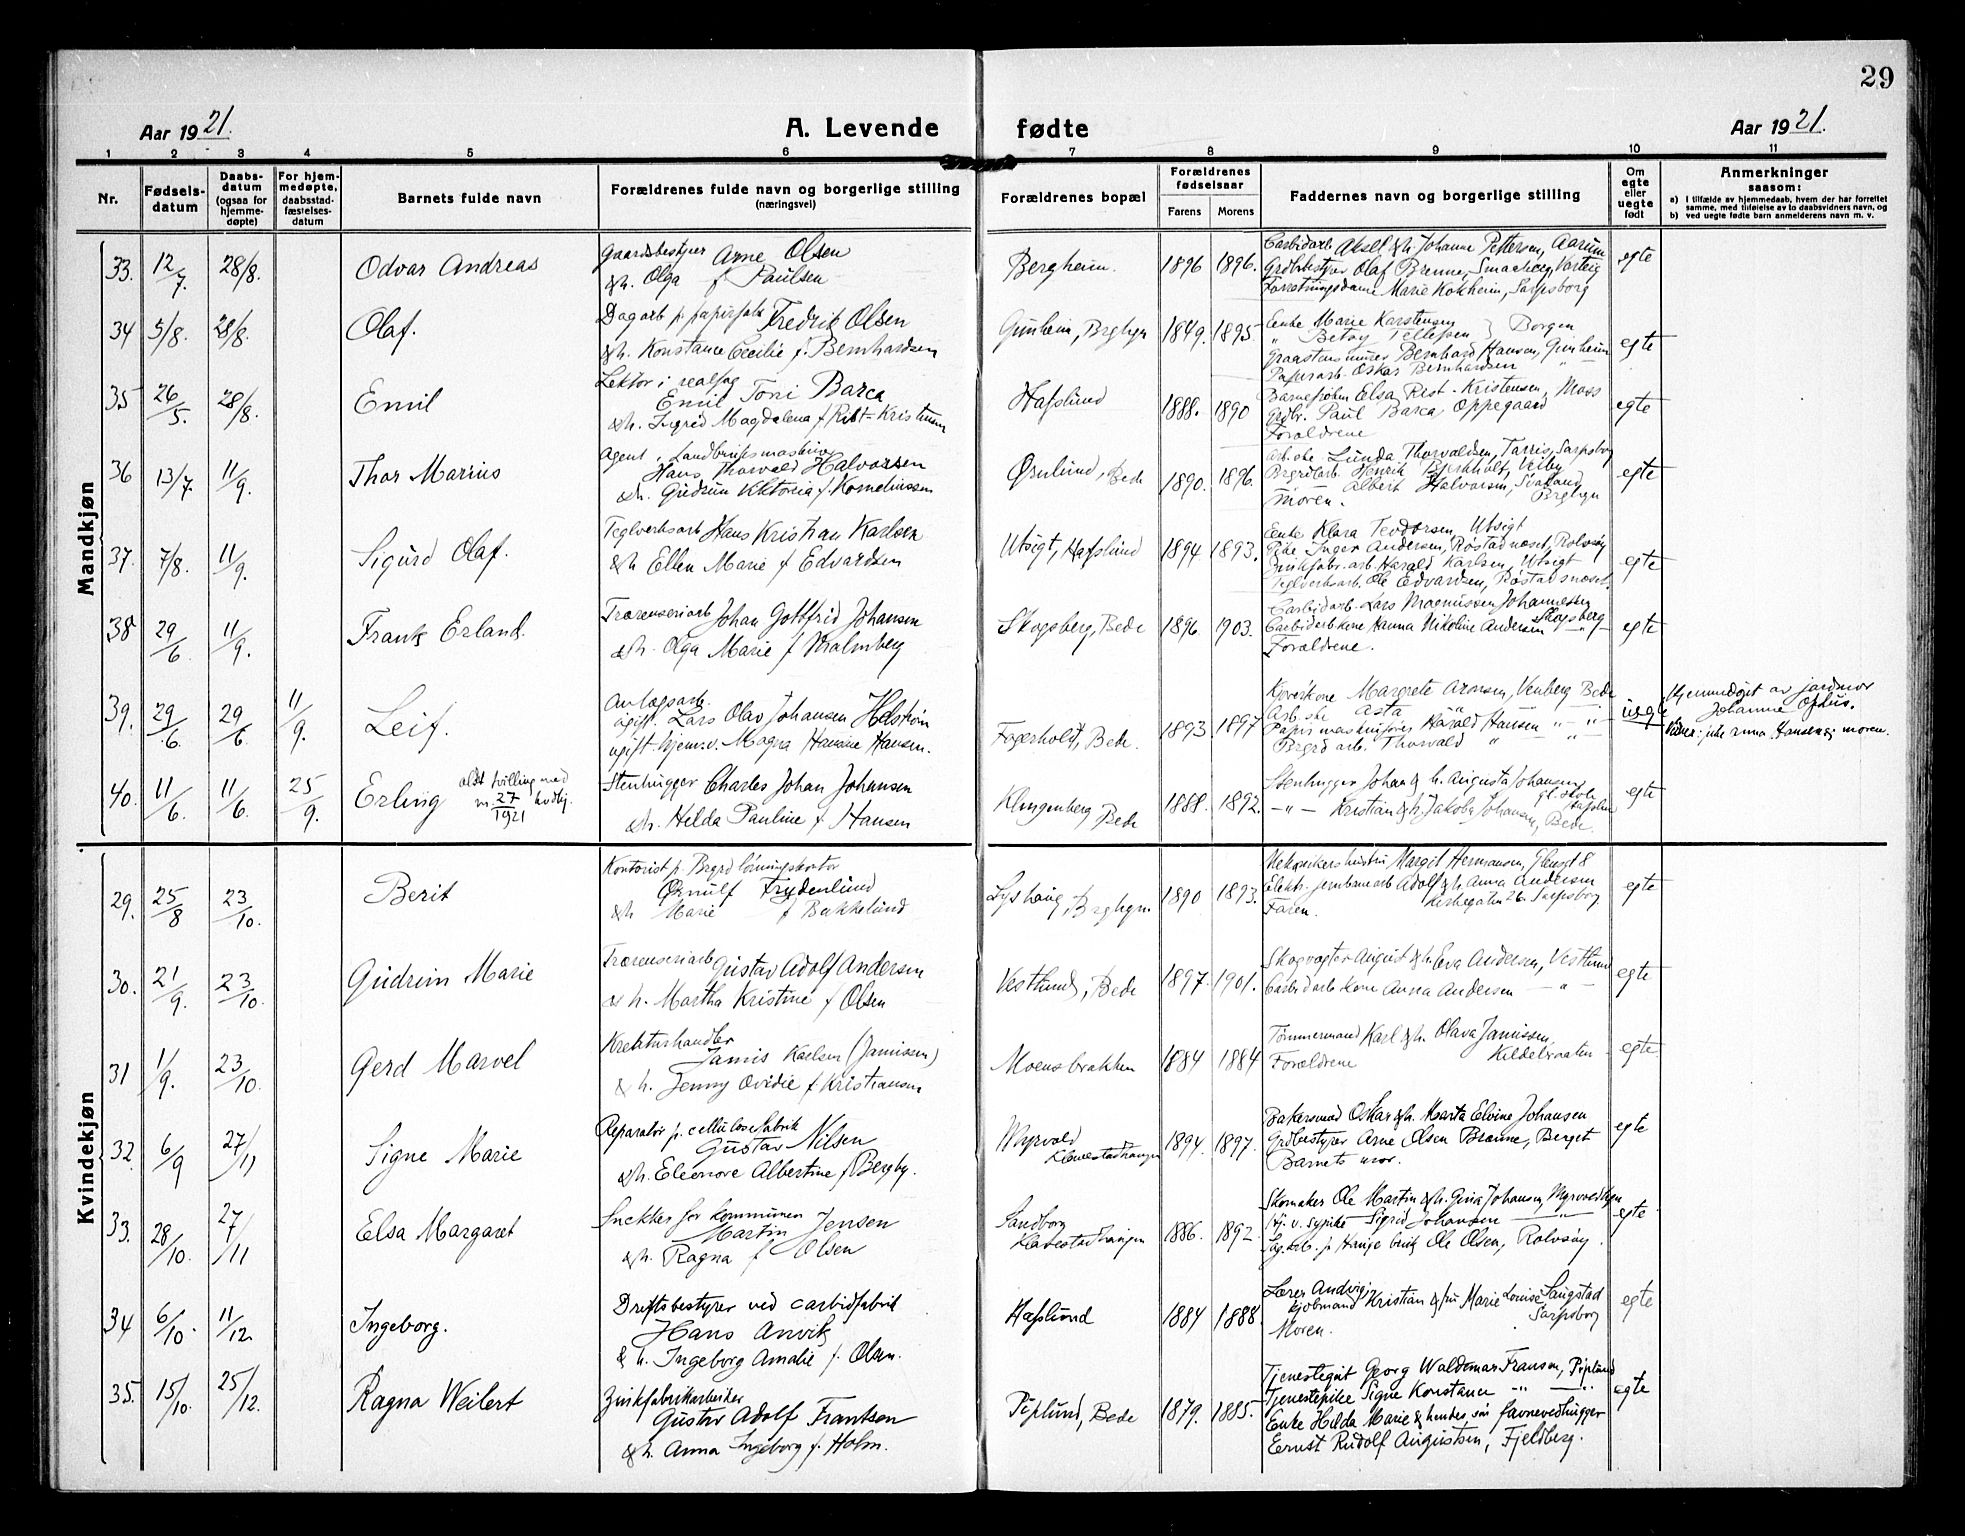 29
Aar 1921.
A. Levende fødte
Aar 1921.
1 2 3 4 5 6 7 8 9 10 11
Nr.
Fødsels-
datum
Daabs-
datum
(ogsaa for
hjemme-
døpte)
For hjem-
medøpte,
daabsstad-
fæstelses-
datum
Barnets fulde navn
Forældrenes fulde navn og borgerlige stilling
(næringsvei)
Forældrenes bopæl
Forældrenes
fødselsaar
Farens
Morens
Faddernes navn og borgerlige stilling
Om
egte
eller
uegte
født
Anmerkninger
saasom:
a) I tilfælde av hjemmedaab, hvem der har forrettet
samme, med tilføielse av to daabsvidners navn, og
b) ved uegte fødte barn anmelderens navn m. v.
Mandkjøn
33. 12/7. 28/8. Odvar Andreas
Gaardsbestyrer Arne Olsen
& h. Olga f. Paulsen
Bergheim. 1896 1896.
Carbidarb. Aksel & h. Johanne Pettersen, Aarum
Grdbestyrer Olaf Brenne, Varteig
Forretningsdame Marie Sarpsborg
egte
34 5/8. 28/8. Olaf.
Dagarb. p. papirfabr. Fredrik Olsen
& h. Konstance Cecilie f. Bernhardsen
Gunheim, Brghyn 1849. 1895
Enke Marie Karstensen
" Betsy Tellefsen } Borgen
Bernhard Hansen, Gunheim
Papirarb. Oskar Bernhardsen "
egte
35 26/5. 28/8. Emil
Lektor i realfag
Emil Toni Barca
& h. Ingrid Magdalena f. Rist-Kristensen
Hafslund 1888. 1890
Elsa Rist-Kristensen, Moss
Grdbr. Paul Barca, Oppegaard
Forældrene
egte
36 13/7. 11/9. Thor Marius
Agent i Landbruksmaskiner
Hans Thorvald Halvorsen
& h. Gudrun Viktoria f. Korneliussen
Ørnlund, Bede 1890. 1896.
Lunda Thorvaldsen, Sarpsborg
Henrik Bjerkholt,
Albert Halvorsen,
Moren. Brghyn
egte
37. 7/8. 11/9. Sigurd Olaf.
Teglverksarb. Hans Kristian Karlsen
& h. Ellen Marie f. Edvardsen
Utsigt, Hafslund 1894 1893.
Enke Klara Teodorsen, Utsigt
Pike Inger Andersen, Røstadnæset, Rolvsøy
Zinkfabr. arb. Harald Karlsen, Utsigt
Teglverksarb. Ole Edvardsen, Røstadnæset.
egte
38 29/6. 11/9. Frank Erland.
Træsenseriarb Johan Gottfrid Johansen
& h. Olga Marie f. Malmberg
Skogsberg, Bede 1896. 1903.
Carbidarb. Lars Magnussen Johannesberg
Carbidarb.kone Hanna Nikoline Andersen Skogsberg
Forældrene.
egte
39. 29/6. 29/6 11/9. Leif.
Anlægsarb.
ugift. Lars Olav Johansen Helstrøm
ugift hjemv. Magna Hansine Hansen.
Fagerholt, Bede. 1893 1897
Margrete Aronsen, Venberg Bede
Arb.ske Asta "
Papirmaskinfører Harald Hansen " "
Brgrd arb. Thorvald " "
uegte
Hjemmedøpt av jordmor
Johanne Ophus.
Vidner: pike Anna Hansen & moren.
40. 11/6. 11/6. 25/9. Erling
ældst tvilling med
nr. 27 kvdkj.
1921
Stenhugger Charles Johan Johansen
& h. Hilda Pauline f. Hansen
Klingenberg, Bede 1888. 1892.
Stenhugger Johan & h. Augusta Johansen
gl. skole Hafslund
— " — Kristian & h. Jakoba Johansen, Bede.
egte
Kvindekjøn
29. 25/8 23/10. Berit
Kontorist p. Brgrd lønningskontor
Ørnulf Frydenlund
& h Marie f. Bakkelund
Lyshaug, Brghyn. 1890 1893.
Margit Hermansen, Glengt 8
Elektr. jernbanearb Adolf & h. Anna Andersen
Faren. Kirkegaten 26. Sarpsborg.
egte
30. 21/9. 23/10. Gudrun Marie
Træsenseriarb Gustav Adolf Andersen
& h. Martha Kristine f. Olsen
Vestlund, Bede 1897. 1901.
Skogvogter August & h. Eva Andersen, Vestlund
Carbidarb. kone Anna Andersen — " —
egte
31 1/9. 23/10. Gerd Marvel
Kreaturhandler
Jamis Karlsen (Jamissen)
& h. Jenny Ovidie f. Kristiansen
Moensbrakken 1884 1884
Tømmermand Karl & h. Olava Jamissen,
Forældrene Kildebraaten
egte.
32. 6/9 27/11 Signe Marie
Reparatør p. cellulosefabrik
Gustav Nilsen
& h. Eleonore Albertine f. Bergby.
Myrvold
Klavestadhaugen 1894. 1897.
Bakersvend Oskar & h. Marta Elvine Johansen
Grdbestyrer Arne Olsen Brenne, Berget
Barnets mor.
egte
33. 28/10. 27/11 Elsa Margaret
Snekker for kommunen
Martin Jensen
& h. Ragna f. Olsen
Sandborg
Klavestadhaugen 1886. 1892.
Skomaker Ole Martin & h. Gina Johansen, Myrvedhyn
sypike Sigrid Johansen — " —
Sagarb. p. Hauge bruk Ole Olsen, Rolvsøy.
egte
34 6/10. 11/12. Ingeborg.
Driftsbestyrer ved carbidfabrik
Hans Anvik
& h. Ingeborg Amalie f. Olsen.
Hafslund 1884 1888
Lærer Andvig
Kjøbmand Kristian & fru Marie Louise Langstad
Moren. Sarpsborg
egte
35. 15/10. 25/12. Ragna Weilert
Zinkfabrikkarbeider
Gustav Adolf Frantsen
& h. Anna Ingeborg f. Holm.
Piplund, Bede 1879. 1885.
Tjenestegut Georg Waldemar Fransen, Piplund
Tjenestepike Signe Konstance " — " —
Enke Hilda Marie & hendes søn favnevedhugger
Ernst Rudolf Augustsen, Fjeldberg.
egte